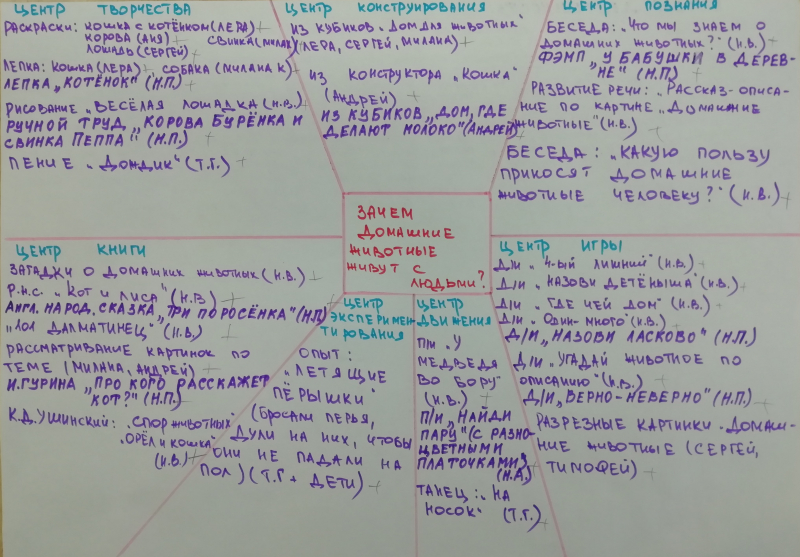 ЦЕНТР ТВОРЧЕСТВА
РАСКРАСКИ: КОШКА С КОТЁНКОМ (ЛЕРА)
КОРОВА (АНЯ) СВИНКА (МИЛАНА К)
ЛОШАДЬ (СЕРГЕЙ)
ЛЕПКА: КОШКА (ЛЕРА), СОБАКА (МИЛАНА К)
ЛЕПКА „КОТЁНОК" (Н.П.)
РИСОВАНИЕ „ВЕСЁЛАЯ ЛОШАДКА (Н.В.)
РУЧНОЙ ТРУД „КОРОВА БУРЁНКА И
СВИНКА ПЕППА" (Н.П.)
ПЕНИЕ „ДОЖДИК" (Т.Г.)
ЦЕНТР КОНСТРУИРОВАНИЯ
ИЗ КУБИКОВ „ДОМ ДЛЯ ЖИВОТНЫХ"
(ЛЕРА, СЕРГЕЙ, МИЛАНА)
ИЗ КОНСТРУКТОРА „КОШКА"
(АНДРЕЙ)
ИЗ КУБИКОВ „ДОМ, ГДЕ
ДЕЛАЮТ МОЛОКО" (АНДРЕЙ)
ЦЕНТР ПОЗНАНИЯ
БЕСЕДА: „ЧТО МЫ ЗНАЕМ О
ДОМАШНИХ ЖИВОТНЫХ?" (Н.В.)
ФЭМП „У БАБУШКИ В ДЕРЕВ-
НЕ" (Н.П.)
РАЗВИТИЕ РЕЧИ: „РАССКАЗ-ОПИСА-
НИЕ ПО КАРТИНЕ „ДОМАШНИЕ
ЖИВОТНЫЕ" (Н.В.)
БЕСЕДА: „КАКУЮ ПОЛЬЗУ
ПРИНОСЯТ ДОМАШНИЕ
ЖИВОТНЫЕ ЧЕЛОВЕКУ?" (Н.В.)
ЗАЧЕМ
ДОМАШНИЕ
ЖИВОТНЫЕ
ЖИВУТ С
ЛЮДЬМИ?
ЦЕНТР КНИГИ
ЗАГАДКИ О ДОМАШНИХ ЖИВОТНЫХ (Н.В.)
Р.Н.С. „КОТ И ЛИСА" (Н.В)
АНГЛ. НАРОД. СКАЗКА „ТРИ ПОРОСЁНКА" (Н.П)
„101 ДАЛМАТИНЕЦ" (Н.В.)
РАССМАТРИВАНИЕ КАРТИНОК ПО
ТЕМЕ (МИЛАНА, АНДРЕЙ)
И.ГУРИНА „ПРО КОГО РАССКАЖЕТ
КОТ?" (Н.П.)
К.Д.УШИНСКИЙ: „СПОР ЖИВОТНЫХ"
„ОРЁЛ И КОШКА"
(Н.В)
ЦЕНТР
ЭКСПЕРИМЕН
ТИРОВАНИЯ
ОПЫТ:
„ЛЕТЯЩИЕ
ПЁРЫШКИ"
(БРОСАЛИ ПЕРЬЯ,
ДУЛИ НА НИХ, ЧТОБЫ
ОНИ НЕ ПАДАЛИ НА
ПОЛ) (Т.Г + ДЕТИ)
ЦЕНТР
ДВИЖЕНИЯ
П/И „У
МЕДВЕДЯ
ВО БОРУ"
(Н.В.)
П/И „НАЙДИ
ПАРУ" (С РАЗНО-
ЦВЕТНЫМИ
ПЛАТОЧКАМИ)
(Н.А.)
ТАНЕЦ: „НА
НОСОК" (Т.Г.)
ЦЕНТР ИГРЫ
Д/И „4-ЫЙ ЛИШНИЙ" (Н.В.)
Д/И „НАЗОВИ ДЕТЁНЫША" (Н.В.)
Д/И „ГДЕ ЧЕЙ ДОМ" (Н.В.)
Д/И „ОДИН-МНОГО" (Н.В.)
Д/И „НАЗОВИ ЛАСКОВО" (Н.П.)
Д/И „УГАДАЙ ЖИВОТНОЕ ПО
ОПИСАНИЮ" (Н.В.)
Д/И „ВЕРНО-НЕВЕРНО" (Н.П.)
РАЗРЕЗНЫЕ КАРТИНКИ „ДОМАШ-
НИЕ ЖИВОТНЫЕ (СЕРГЕЙ,
ТИМОФЕЙ)